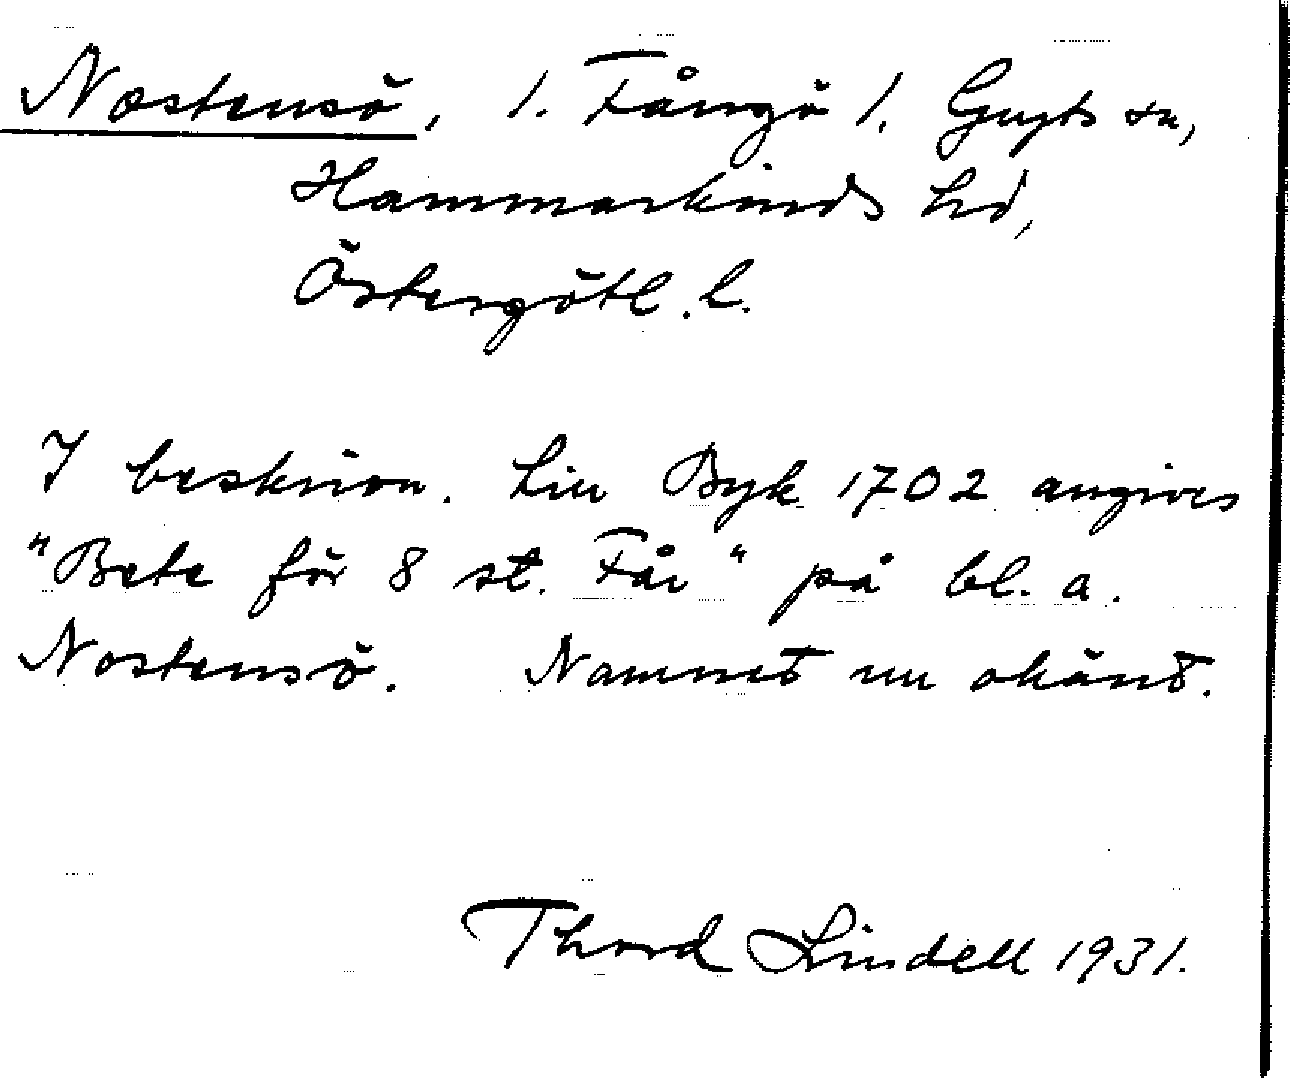 Nostensö, 1. Fångö 1, Gryts sn,
Hammarkinds hd,
Östergötl. l.
I beskrivn. Liu Byk 1702 angives
"Bete för 8 st. Får" på bl. a.
Nostensö. Namnet nu okänt.
Thord Lindell 1931.